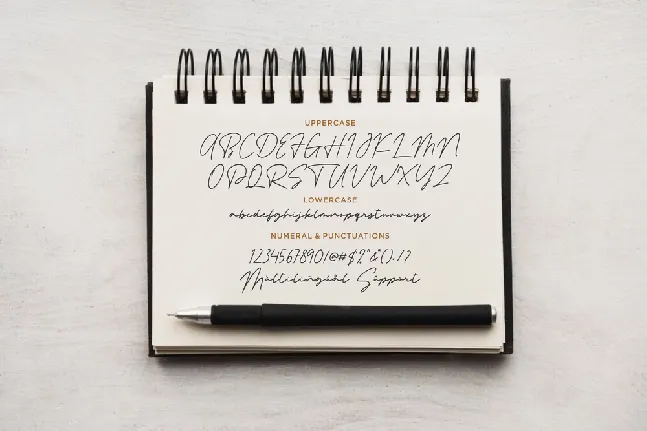 UPPERCASE
ABCDEFGHIJKLMN
OPQRSTUVWXYZ
LOWERCASE
abcdefghijklmnopqrstuvwxyz
NUMERAL & PUNCTUATIONS
1234567890!@#$%^&*().,!?
Support